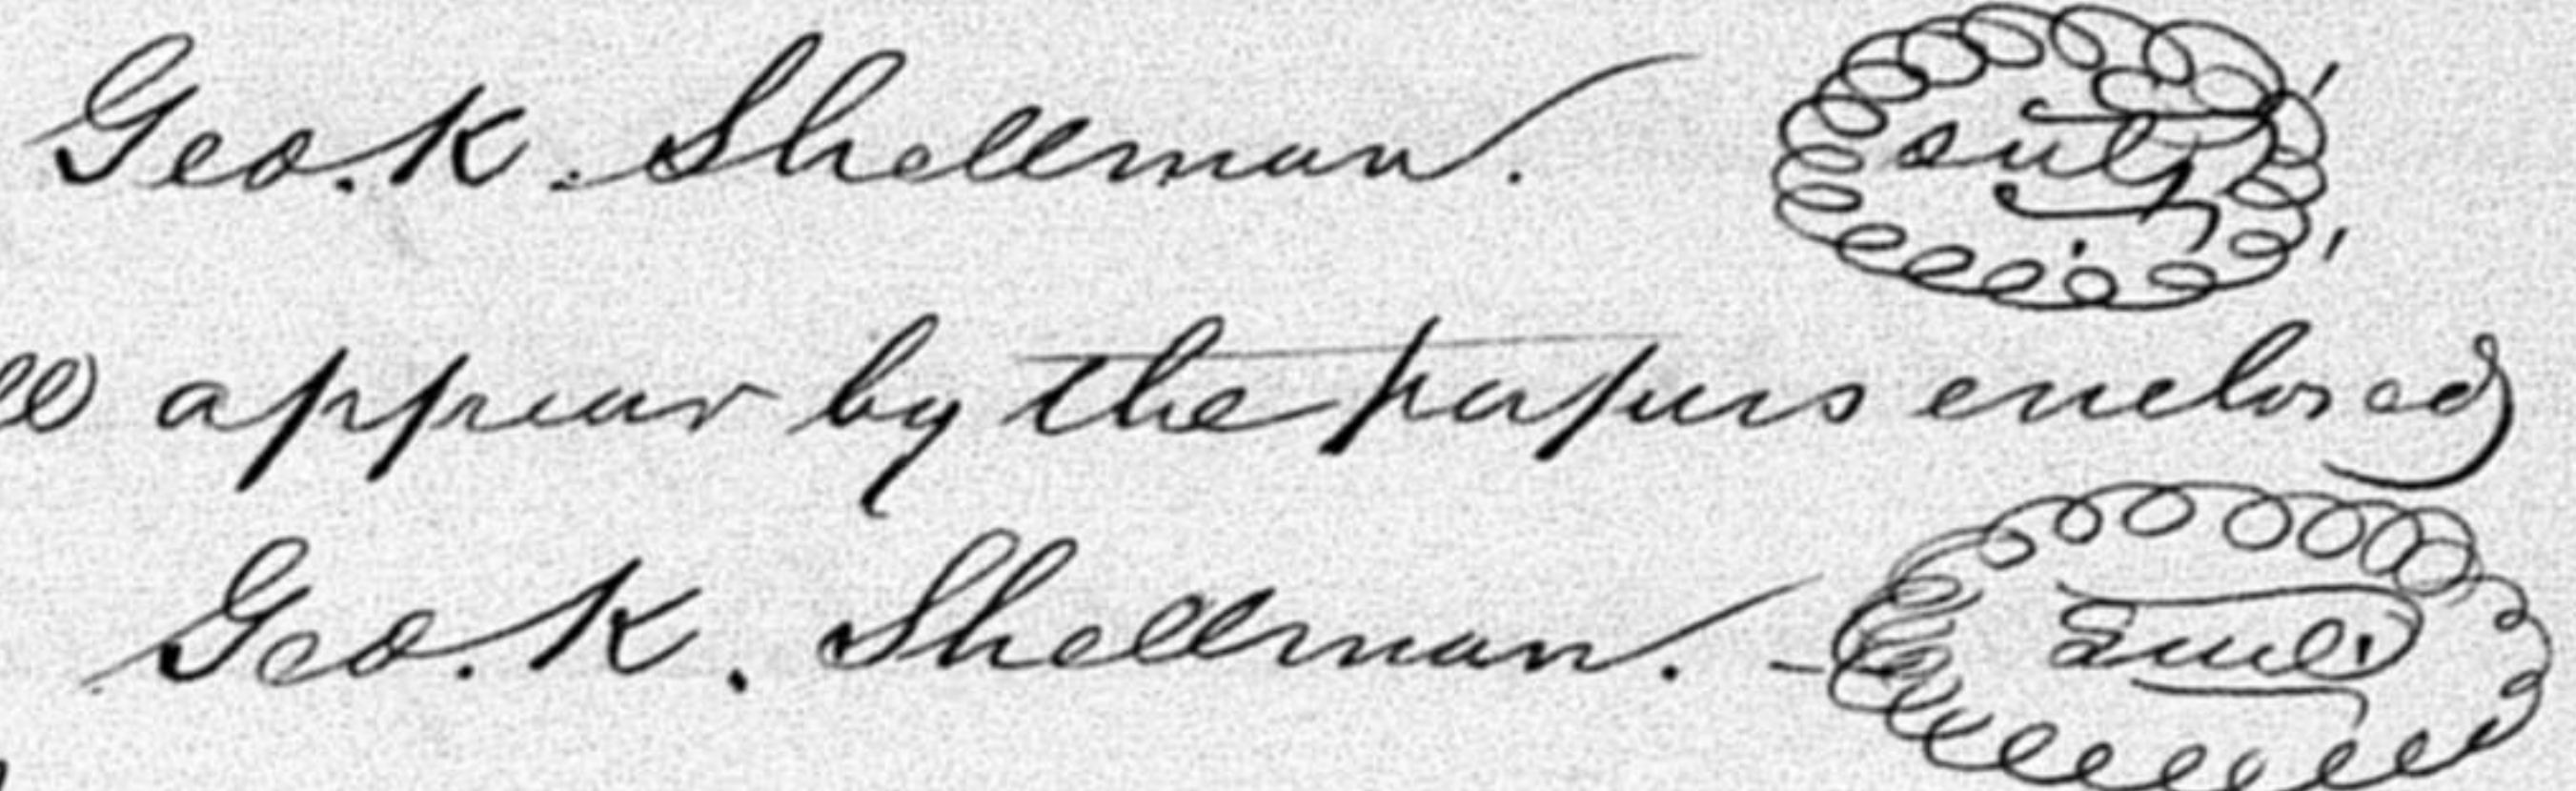 Geo. K. Shellman. Seal
ll appear by the papers enclosed
Geo. K. Shellman. - Seal